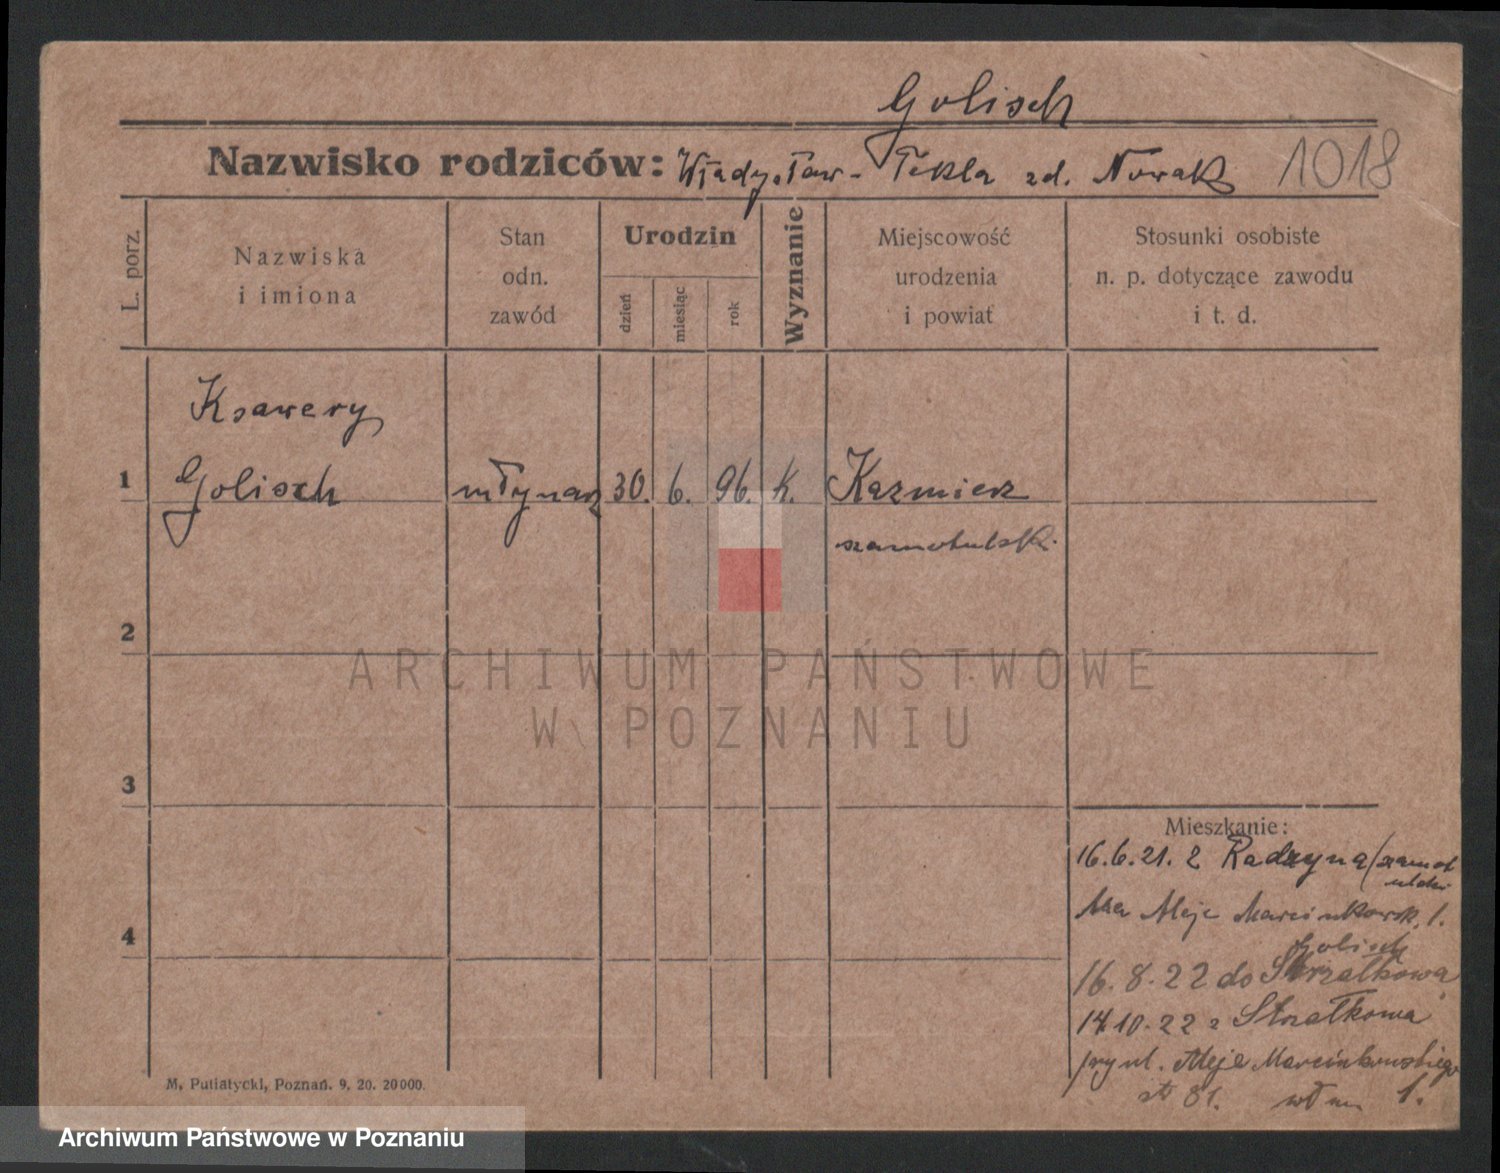 Golisch
Nazwisko rodziców: Władysław - Tekla zd. Nowak 1018
L. porz.
Nazwiska
i imiona
Stan
odn.
zawód
Urodzin
dzień
miesiąc
rok
Wyznanie
Miejscowość
urodzenia
i powiat
Stosunki osobiste
n. p. dotyczące zawodu
i t. d.
Ksawery
1 Golisch młynarz 30. 6. 96. k. Kazmierz
szamotulski
2
3
4
ARCHIWUM PAŃSTWOWE
W POZNANIU
Mieszkanie:
16.6.21. z Radzyna (szamotulski
Aleje Marcinkowsk. 1.
Golisch
16.8.22 do Strzałkowa
14.10.22 z Strzałkowa
przy ul. Aleje Marcinkowskiego
1.
M. Putiatycki, Poznań. 9. 20. 20000.
Archiwum Państwowe w Poznaniu